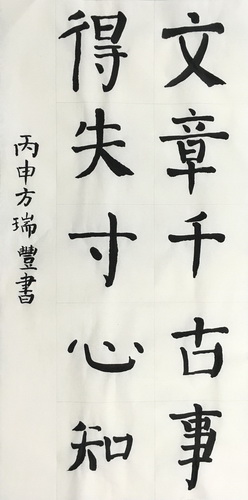 文章千古事
得失寸心知
丙申方瑞豐書